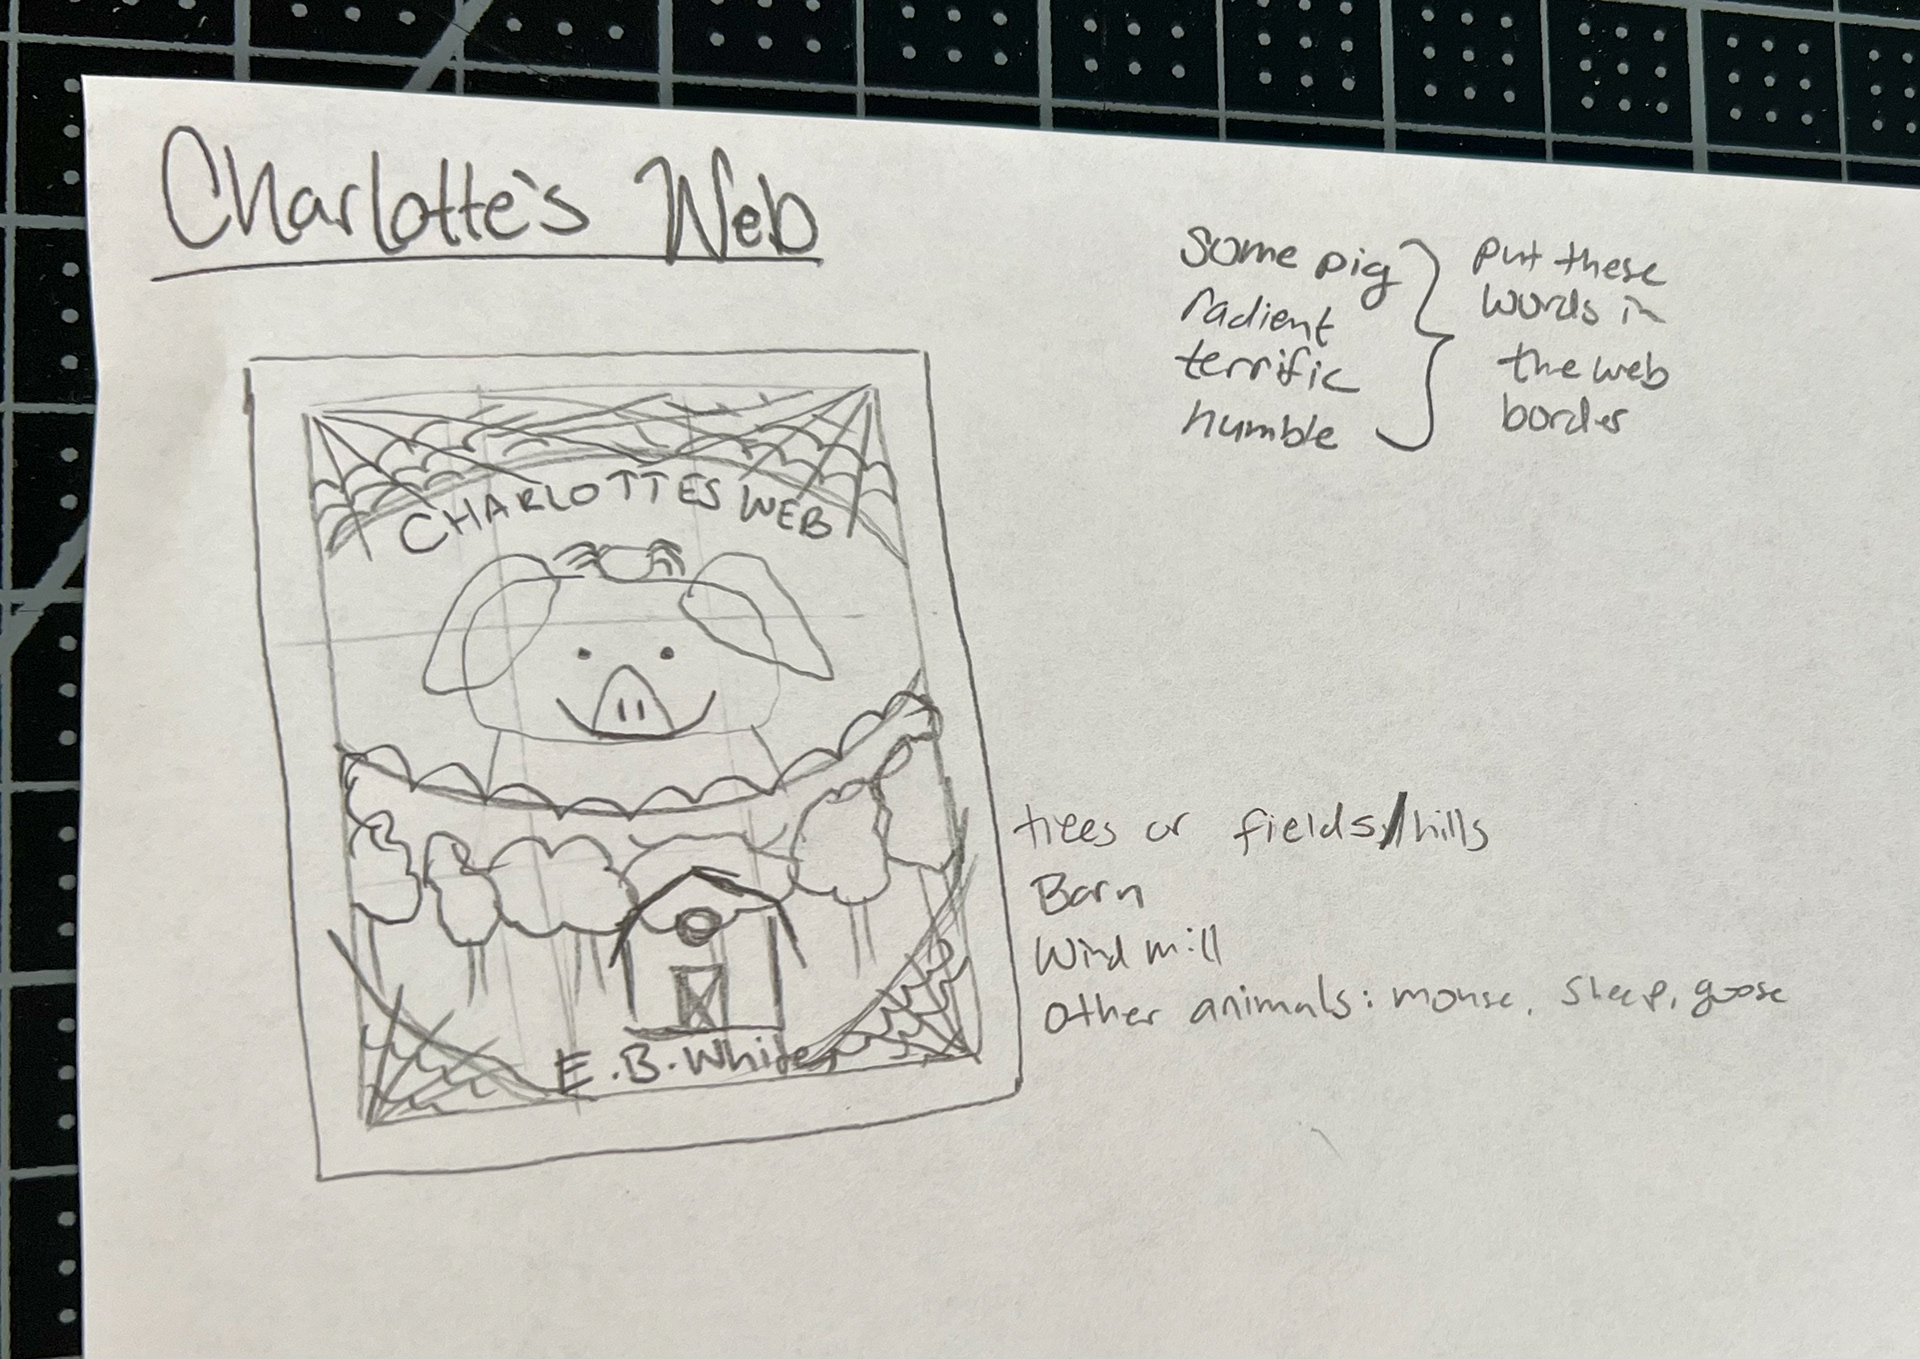 Charlotte's Web
some pig
radient
terrific
humble
put these
words in
the web
border
CHARLOTTES WEB
trees or fields/hills
Barn
Wind mill
other animals: mouse, sheep, goose
E.B. White